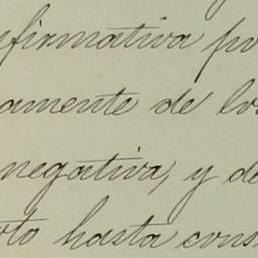 firmativa po
amente de los
negativa, y de
oto hasta cons